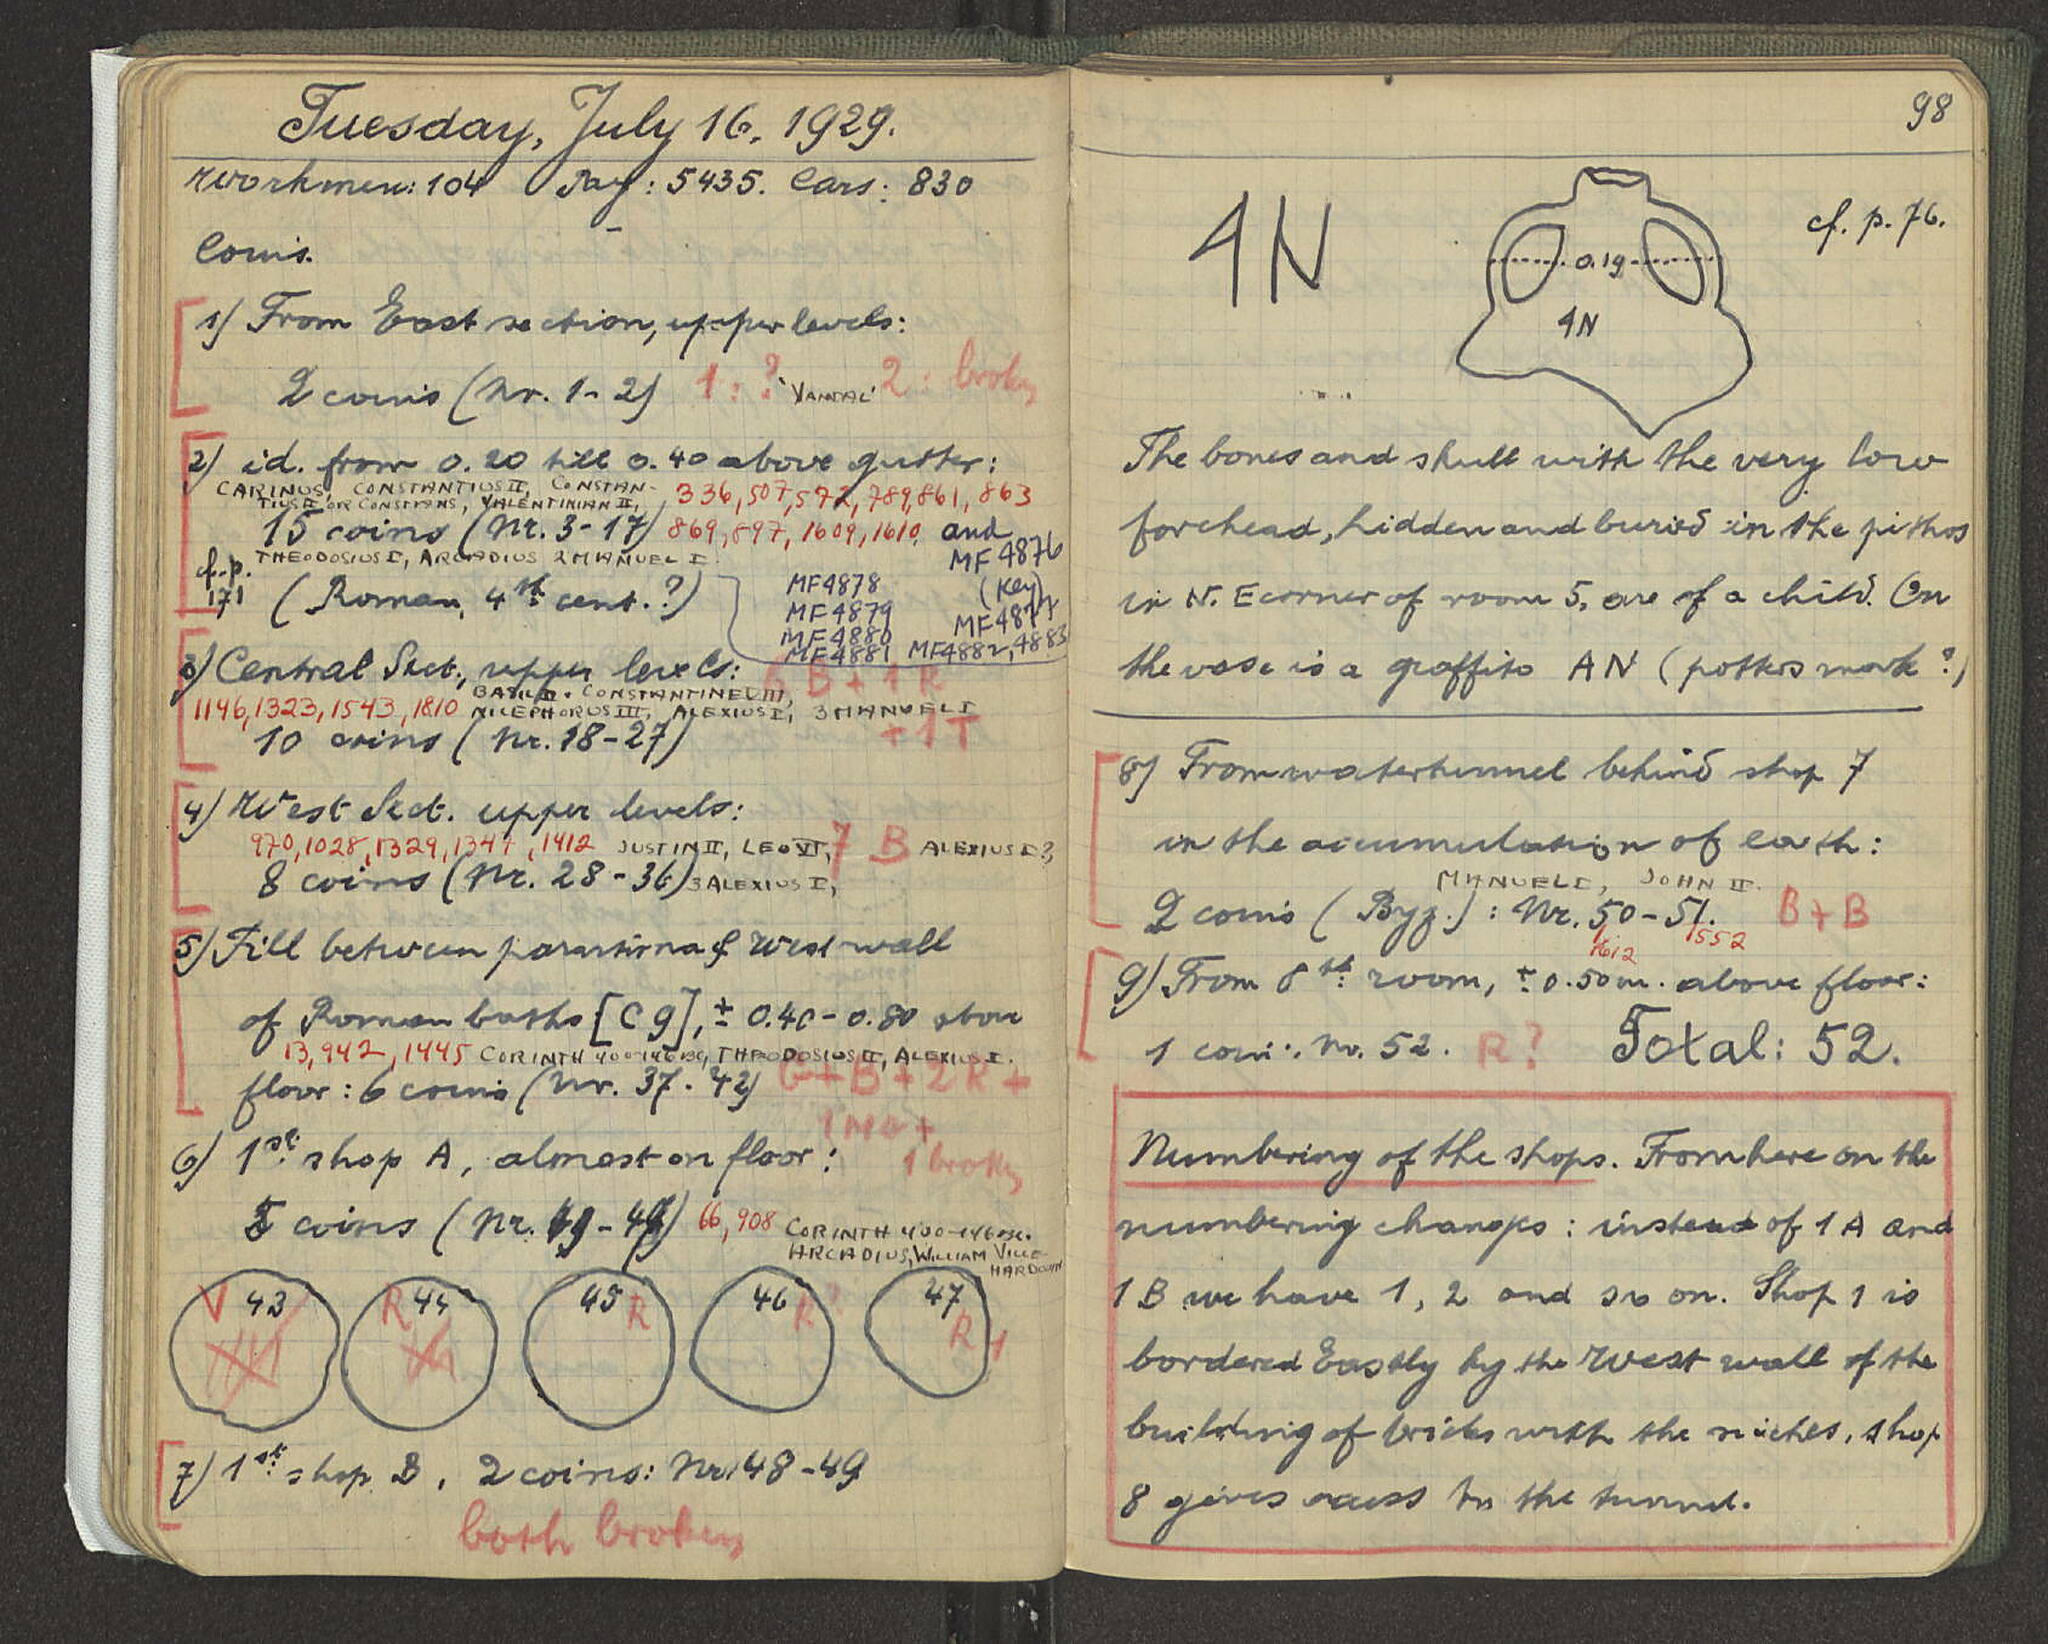 Tuesday, July 16, 1929.
Workmen: 104 Pay: 5435. Cars: 830
Coins.
1) From East section, upper levels:
2 coins (Nr. 1-2) 1: ? 'VANDAL' 2: broken
2) id. from 0.20 till 0.40 above gutter:
CARINUS, CONSTANTIUS II, CONSTAN- 336, 507, 572, 789, 861, 863
TIUS II OR CONSTANS, VALENTINIAN II,
15 coins (Nr. 3-17) 869, 897, 1609, 1610, and
THEODOSIUS I, ARCADIUS 2 MANUEL I. MF 4876
cf. p. 171 (Roman, 4th cent.?) MF4878 (Key)
MF4879 MF4877
MF4880
MF4881 MF4882, 4883
3) Central Sect., upper levels: 6 B + 1 R
BASIL II - CONSTANTINE VIII,
1146, 1323, 1543, 1810 NICEPHORUS III, ALEXIUS I, 3 MANUEL I
10 coins (Nr. 18-27) + 1 T
4) West Sect. upper levels:
970, 1028, 1329, 1347, 1412 JUSTIN II, LEO VI, 7 B ALEXIUS I?,
8 coins (Nr. 28-36) 3 ALEXIUS I,
5) Fill between & West wall
of Roman baths [C9], ± 0.40-0.80 above
13, 942, 1445 CORINTH 400-146 BC, THEODOSIUS II, ALEXIUS I.
floor: 6 coins (Nr. 37-42) G+B+2R+
+
6) 1st shop A, almost on floor: 1 broken
5 coins (Nr. ) 66, 908 CORINTH 400-146 BC.
ARCADIUS, WILLIAM VILLE-
HARDOUIN
V 43 R 44 45 R 46 R? 47 R
7) 1st shop B, 2 coins: Nr. 48-49
both broken
98
AN cf. p. 76.
0.19
AN
The bones and skull with the very low
forehead, hidden and buried in the pithos
in N.E corner of room 5, are of a child. On
the vase is a graffito AN (potters mark?)
8) From watertunnel behind shop 7
in the accumulation of earth:
MANUEL I, JOHN II.
2 coins (Byz.): Nr. 50-51. B+B
1612 1552
9) From 8th room, ± 0.50 m. above floor:
1 coin: Nr. 52. R? Total: 52.
Numbering of the shops. From here on the
numbering changes: instead of 1A and
1B we have 1, 2 and so on. Shop 1 is
bordered Eastly by the West wall of the
building of bricks with the niches, shop
8 gives access to the tunnel.